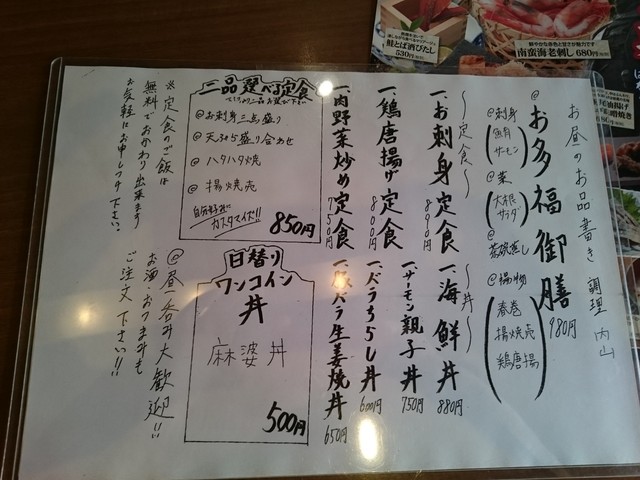 お昼のお品書き 調理 内山
@お多福御膳 980円
@お刺身(真鯛 サーモン)
@菜(大根サラダ)
@茶碗蒸し
@揚物(春巻 揚焼売 鶏唐揚)
〜定食〜
一、お刺身定食 890円
一、鶏唐揚げ定食 800円
一、肉野菜炒め定食 750円
〜丼〜
一、海鮮丼 880円
一、サーモン親子丼 750円
一、バラちらし丼 600円
一、豚バラ生姜焼丼 650円
二品選べる定食
@お刺身三点盛り
@天ぷら盛り合わせ
@ハタハタ焼
@揚焼売
自分好みに
カスタマイズ!!
850円
日替り
ワンコイン
丼
麻婆丼
500円
※定食のご飯は
無料でおかわり出来ます
お気軽にお申しつけ下さい。
@昼呑み大歓迎!!
お酒、おつまみも
ご注文下さい!!
鮭とば酒びたし
530円
南蛮海老刺し 680円